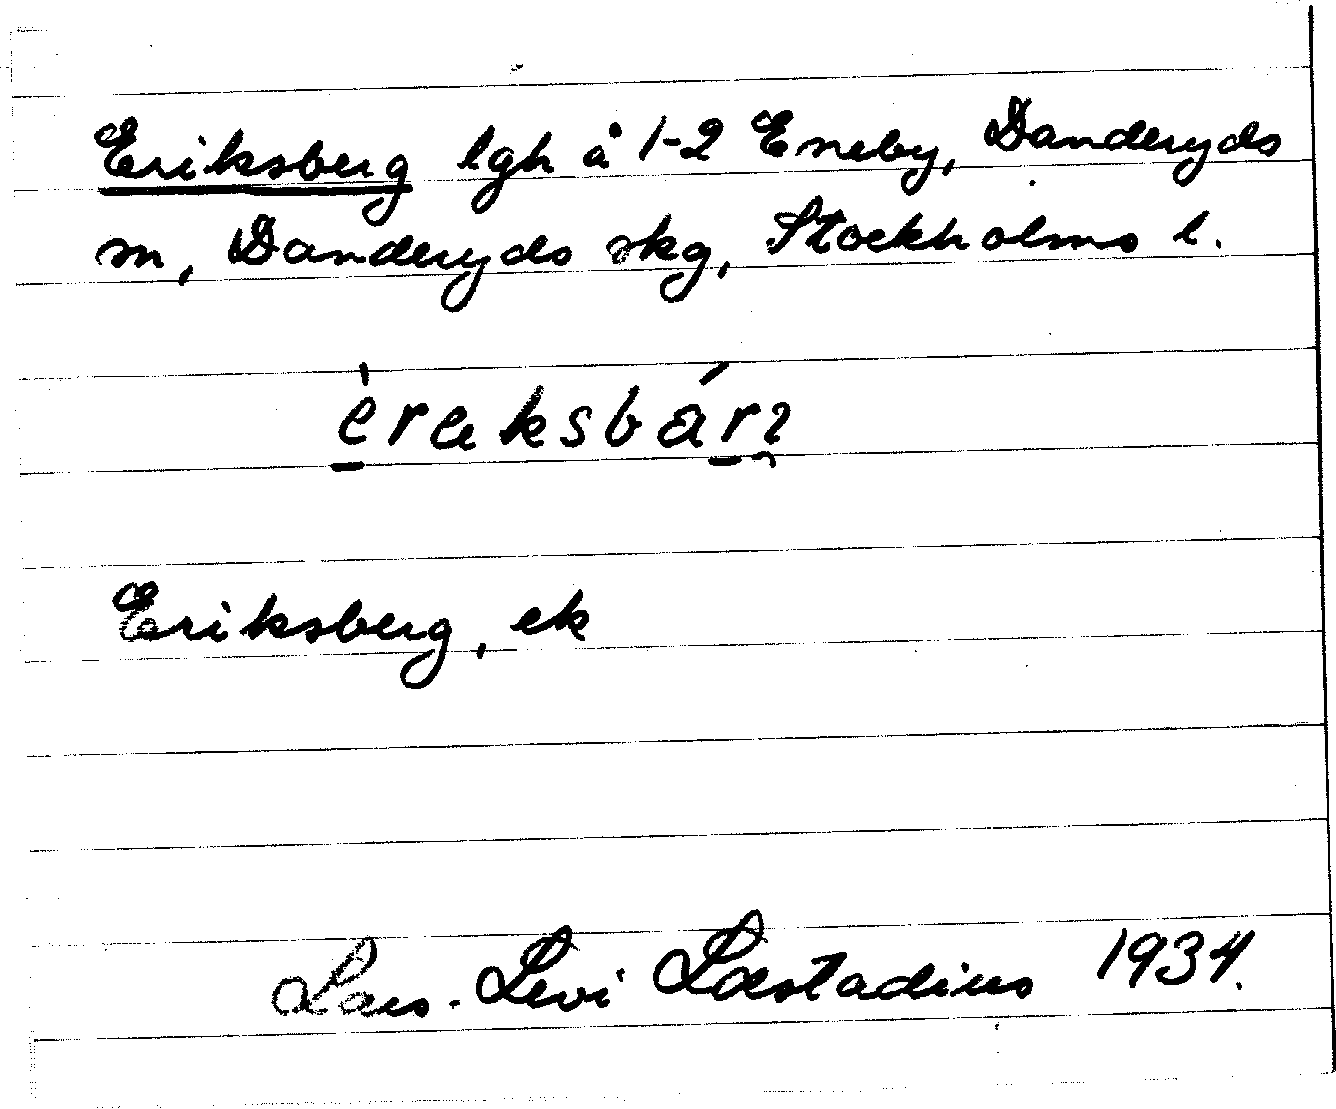 Eriksberg lgh å 1-2 Eneby, Danderyds
sn, Danderyds skg, Stockholms l.
Eriksberg, ek
Lars-Levi Læstadius 1934.